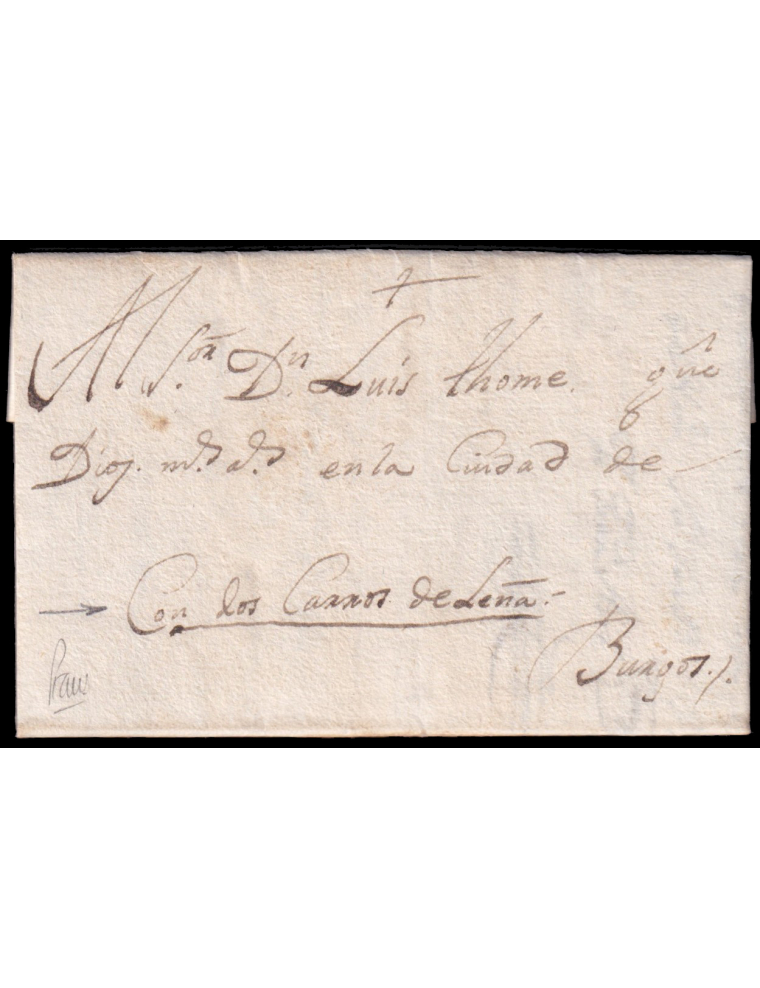 +
Al S.or D.n Luis thome. q̃ue
Dios. m.s a.s en la Ciudad de
Con dos Carros de Leña.-
Burgos./.